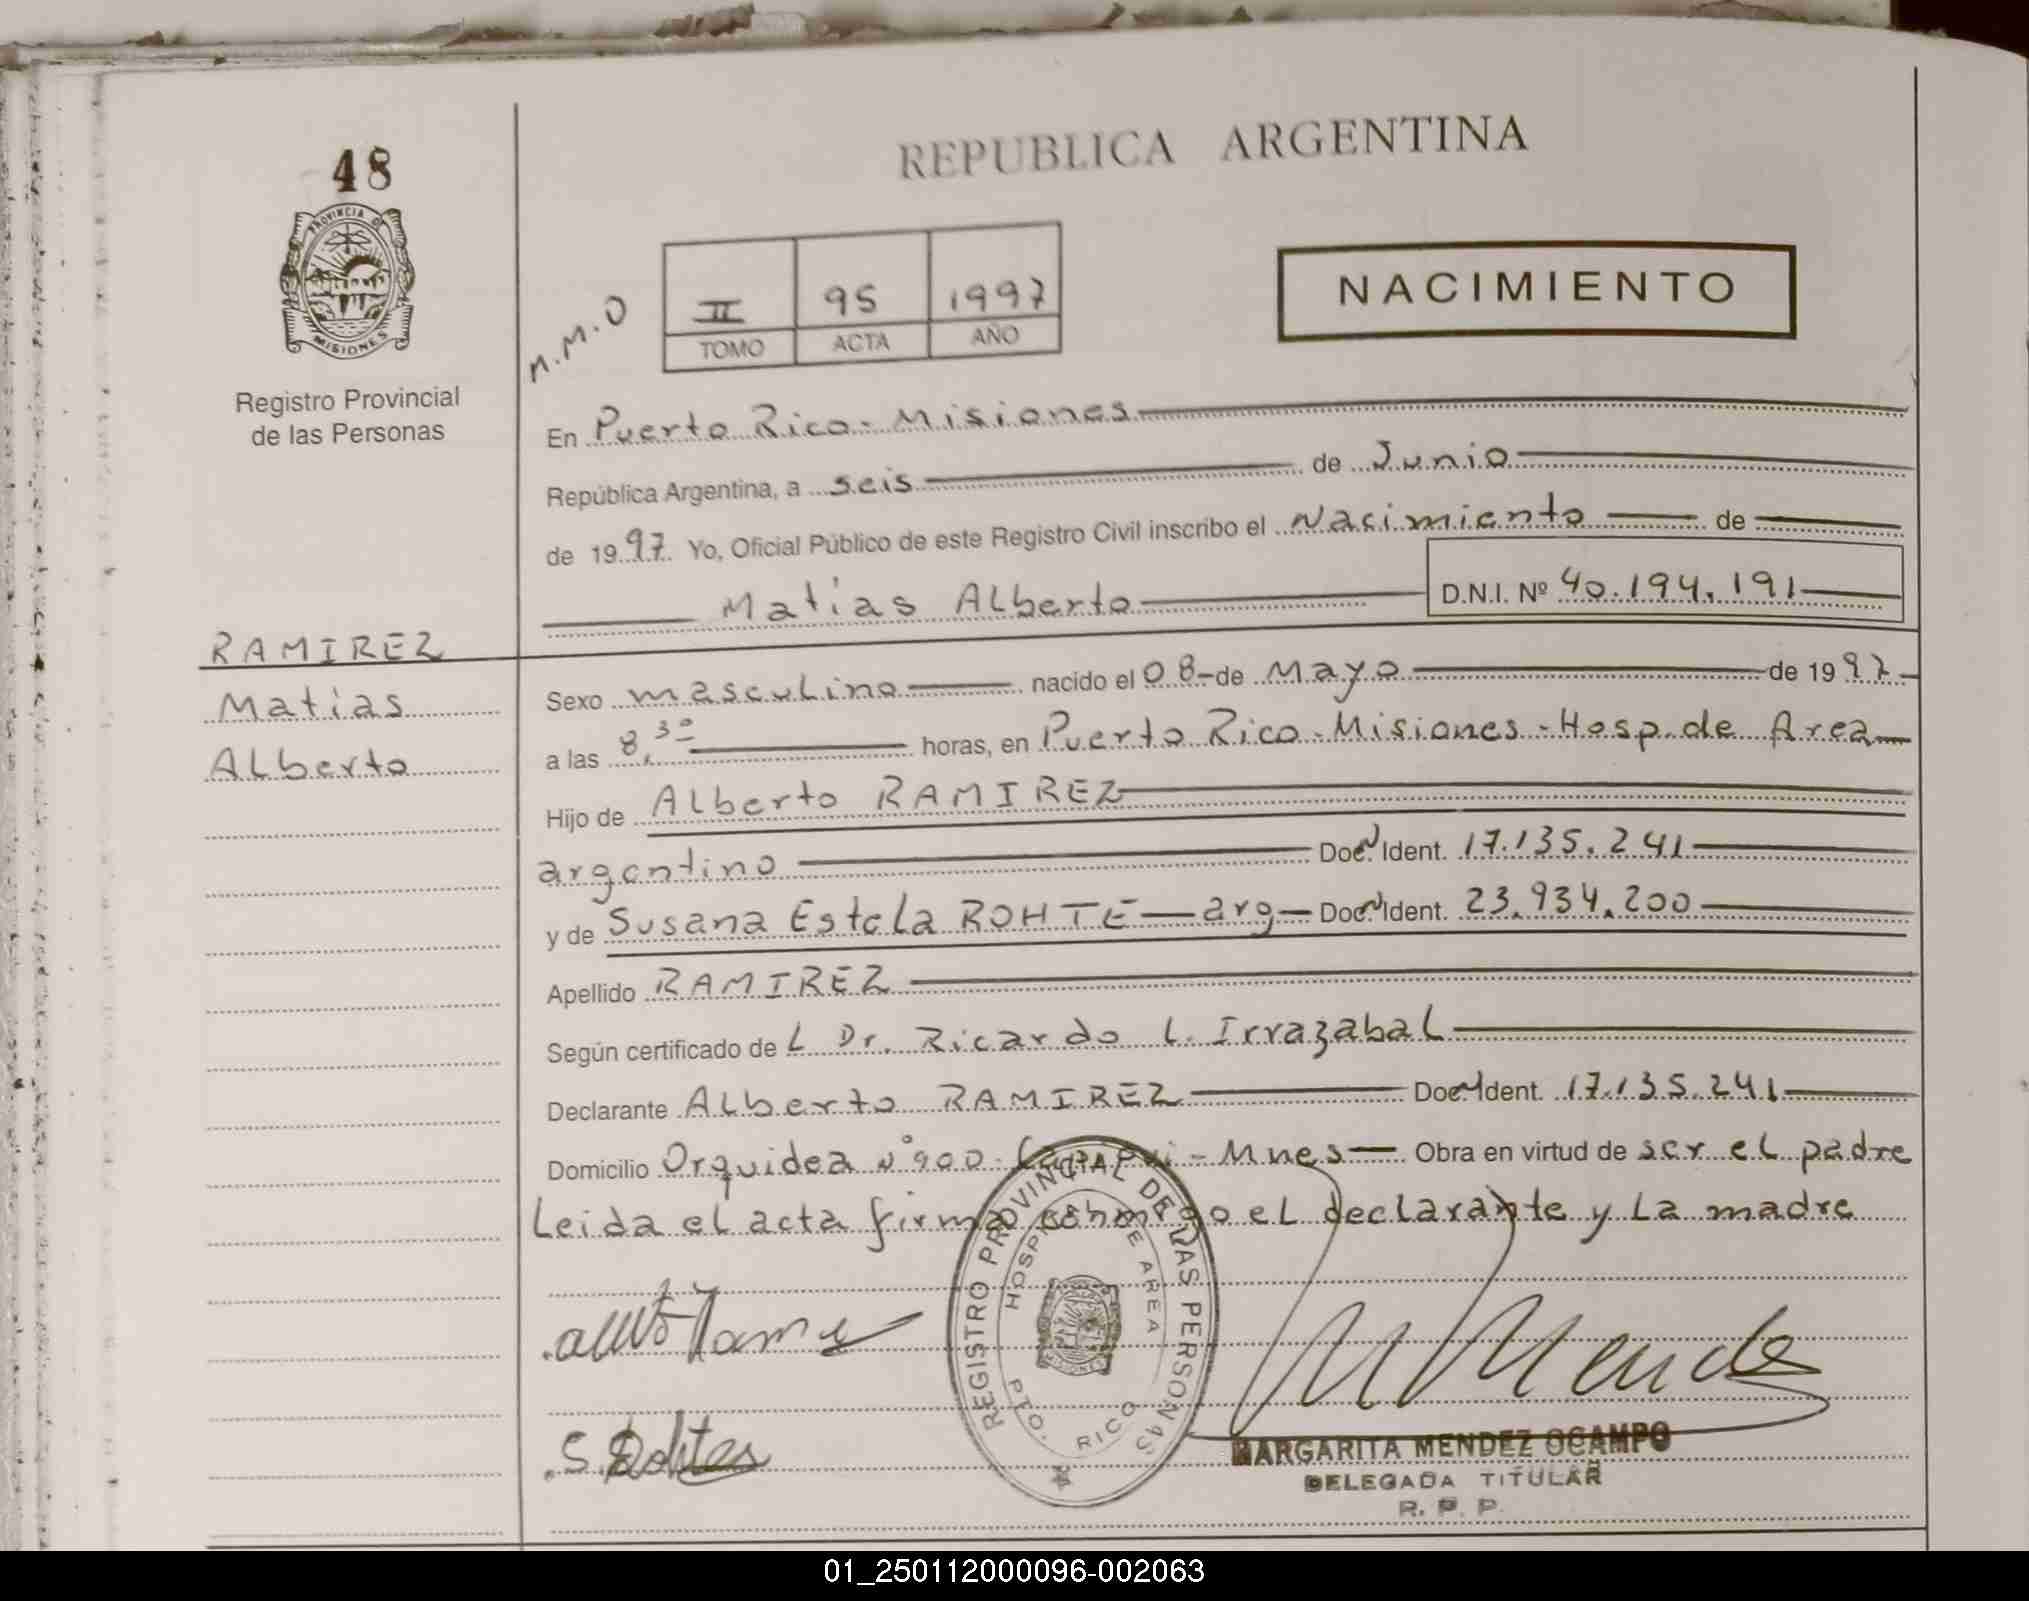 48
PROVINCIA DE
MISIONES
Registro Provincial
de las Personas
RAMIREZ
Matias
Alberto
REPUBLICA ARGENTINA
M.M.O
II 95 1997
TOMO ACTA AÑO
NACIMIENTO
En Puerto Rico - Misiones
República Argentina, a seis de Junio
de 1997 Yo, Oficial Público de este Registro Civil inscribo el Nacimiento de
Matias Alberto D.N.I. Nº 40.194.191
Sexo masculino nacido el 08-de Mayo de 1997
a las 8,30 horas, en Puerto Rico - Misiones - Hosp. de Area
Hijo de Alberto RAMIREZ
argentino Doc. Ident. 17.135.241
y de Susana Estela ROHTE - arg - Doc. Ident. 23.934.200
Apellido RAMIREZ
Según certificado de L Dr. Ricardo L. Irrazabal
Declarante Alberto RAMIREZ Doc. Ident. 17.135.241
Domicilio Orquidea Nº 900 - Capiovi - Mnes Obra en virtud de ser el padre
Leida el acta firma conmigo el declarante y La madre
REGISTRO PROVINCIAL DE LAS PERSONAS
HOSPITAL DE AREA
PTO. RICO
MARGARITA MENDEZ OCAMPO
DELEGADA TITULAR
R. P. P.
01_250112000096-002063